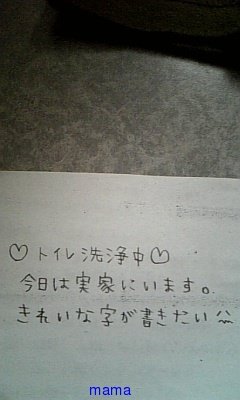 ♡トイレ洗浄中♡
今日は実家にいます。
きれいな字が書きたい^^
mama